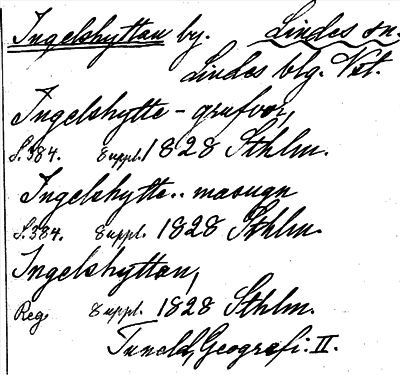 Ingelshyttan by. Lindes sn.
Lindes blg. Vst.
Ingelshytte-grufvor,
S. 384. Suppl. 1828 Sthlm.
Ingelshytte.. masugn
S. 384. Suppl. 1828 Sthlm.
Ingelshyttan,
Reg. Suppl. 1828 Sthlm.
Tuneld, Geografi. II.